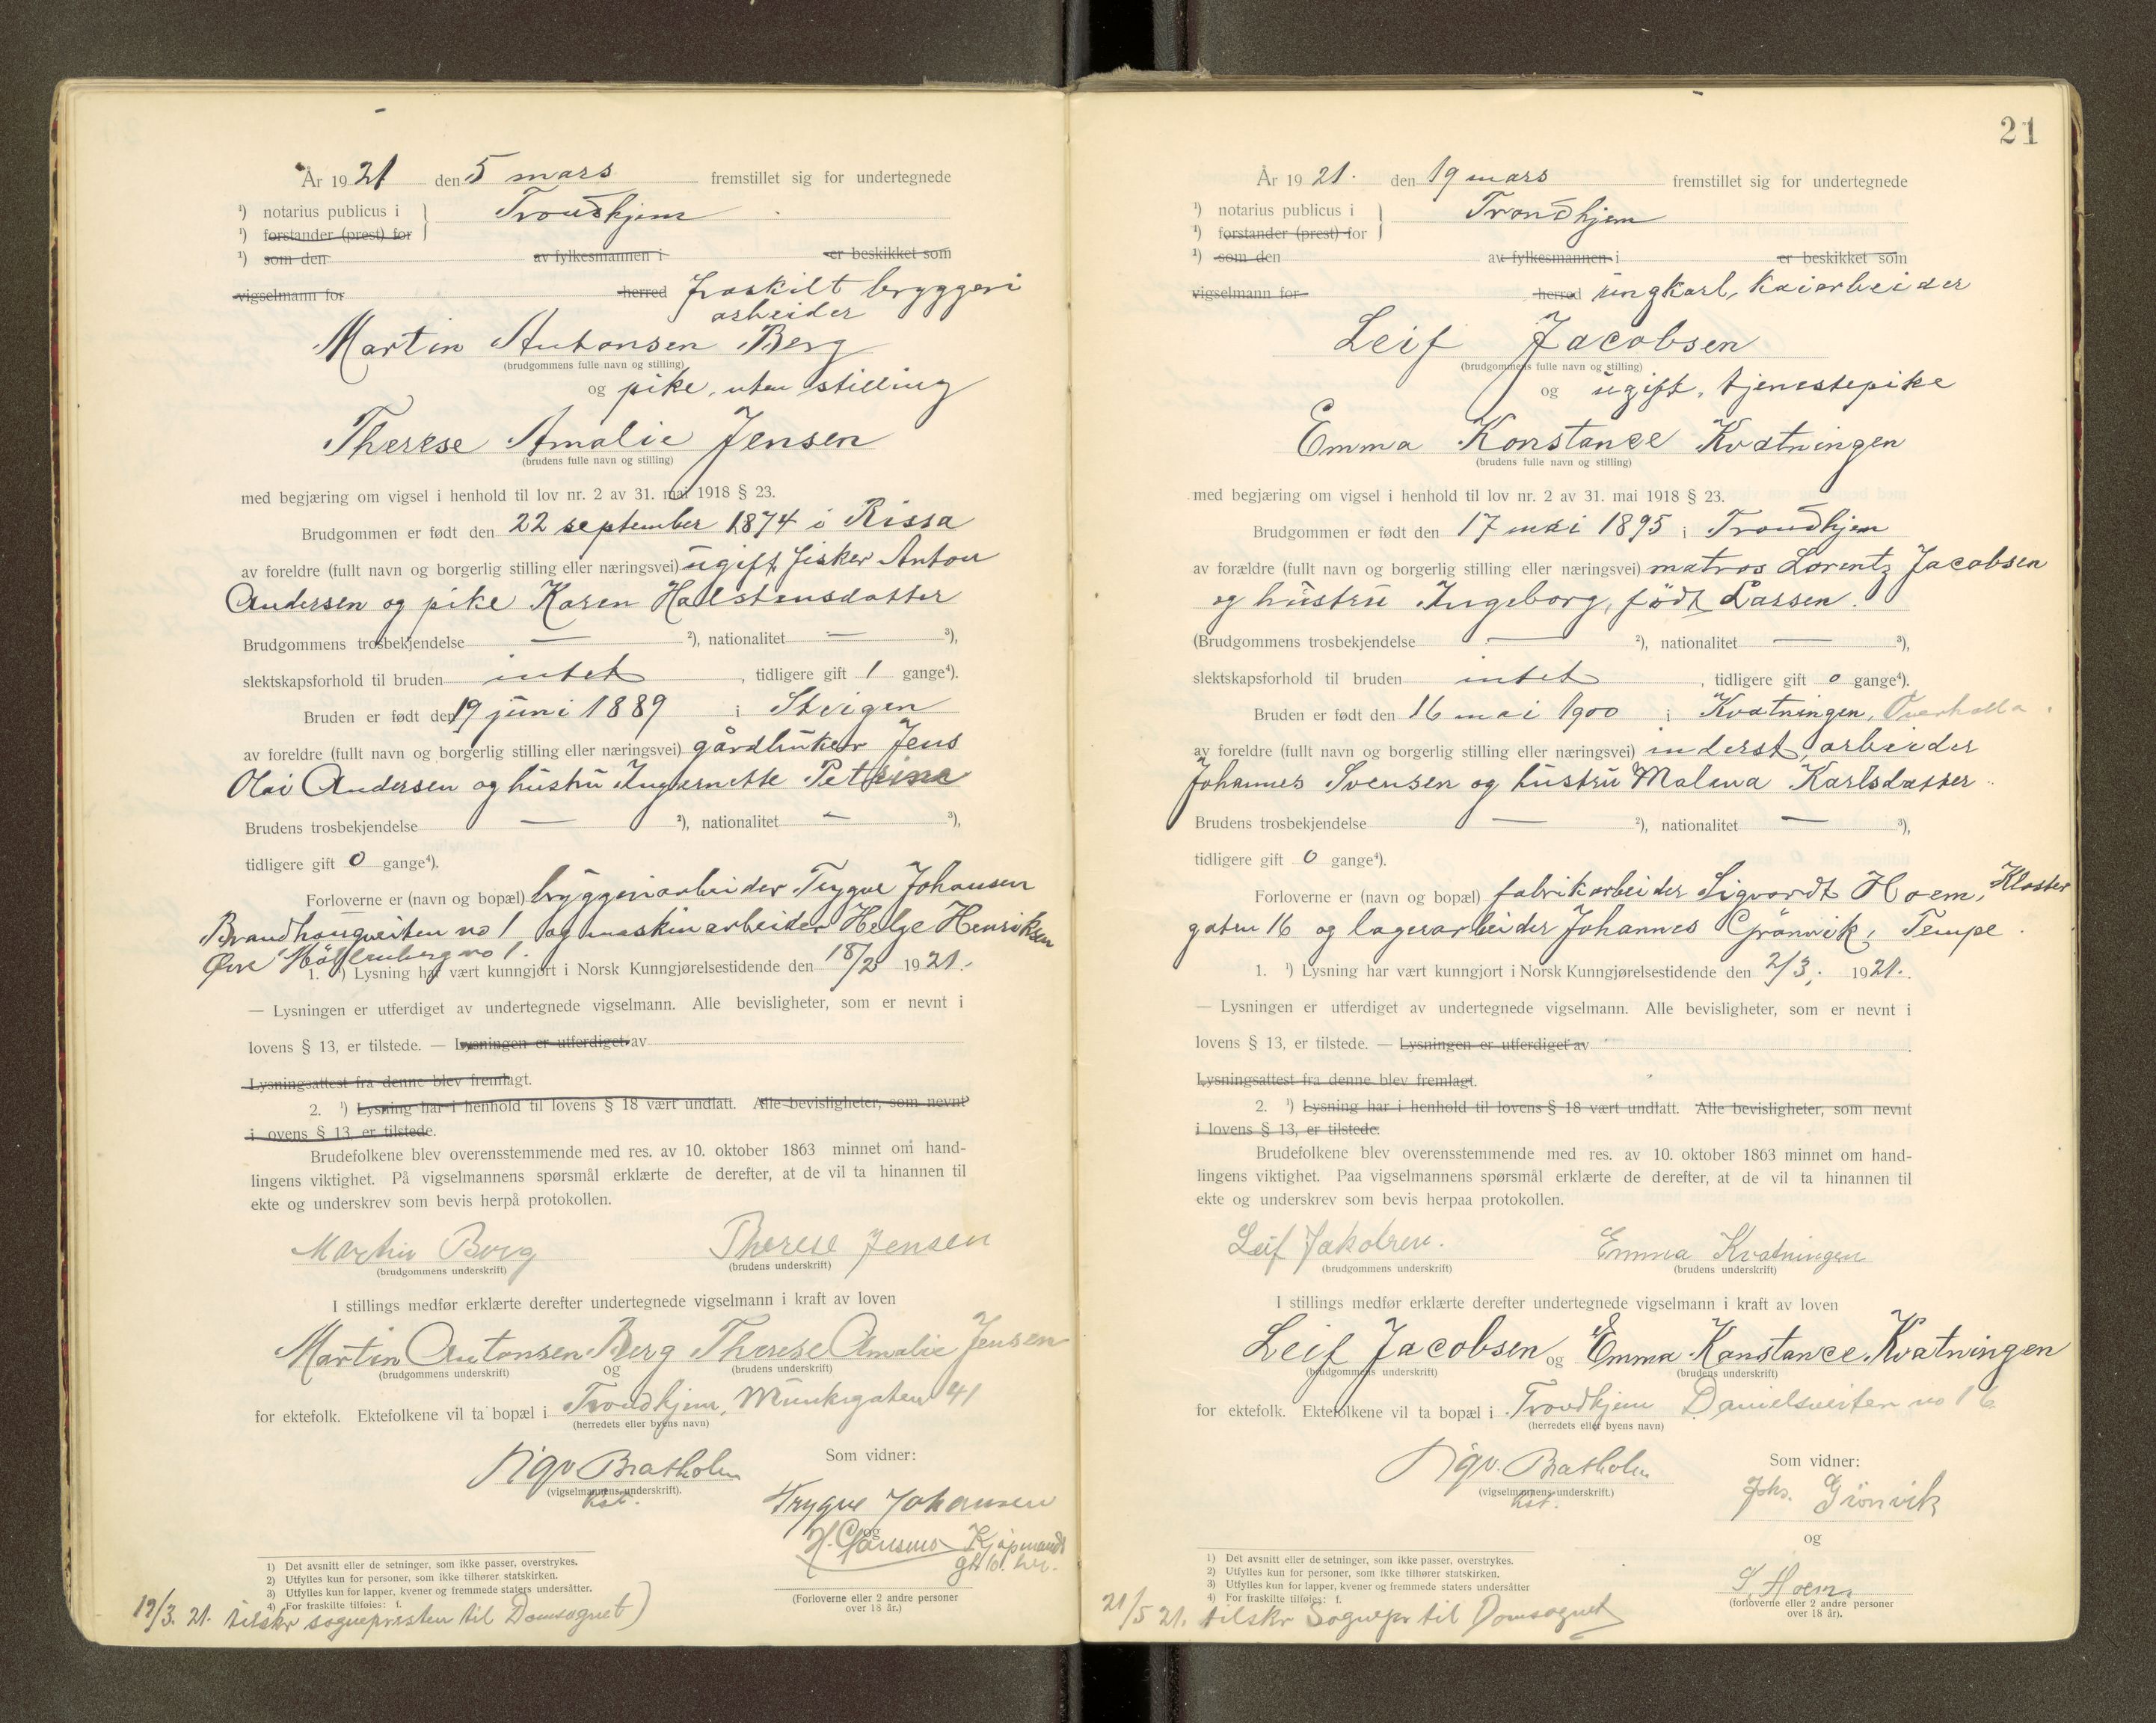 År 1921 den 5 mars fremstillet sig for undertegnede
¹) notarius publicus i } Trondhjem
¹) forstander (prest) for
¹) som den av fylkesmannen i er beskikket som
vigselmann for herred fraskilt bryggeri
arbeider
Martin Antonsen Berg
(brudgommens fulle navn og stilling)
og pike, uten stilling
Therese Amalie Jensen
(brudens fulle navn og stilling)
med begjæring om vigsel i henhold til lov nr. 2 av 31. mai 1918 § 23.
Brudgommen er født den 22 september 1874 i Rissa
av foreldre (fullt navn og borgerlig stilling eller næringsvei) ugift fisker Anton
Andersen og pike Karen Halstensdatter
Brudgommens trosbekjendelse — ²), nationalitet — ³),
slektskapsforhold til bruden intet, tidligere gift 1 gange⁴).
Bruden er født den 19 juni 1889 i Steigen
av foreldre (fullt navn og borgerlig stilling eller næringsvei) gårdbruker Jens
Olai Andersen og hustru Ingernette Petrine
Brudens trosbekjendelse — ²), nationalitet — ³),
tidligere gift 0 gange⁴).
Forloverne er (navn og bopæl) bryggeriarbeider Trygve Johansen
Brandhaugveiten no 1 og maskinarbeider Helge Henriksen
Øvre Möllenberg no 1.
1. ¹) Lysning har vært kunngjort i Norsk Kunngjørelsestidende den 18/2 1921.
— Lysningen er utferdiget av undertegnede vigselmann. Alle bevisligheter, som er nevnt i
lovens § 13, er tilstede. — Lysningen er utferdiget av
Lysningsattest fra denne blev fremlagt.
2. ¹) Lysning har i henhold til lovens § 18 vært undlatt. Alle bevisligheter, som nevnt
i ovens § 13, er tilstede.
Brudefolkene blev overensstemmende med res. av 10. oktober 1863 minnet om hand-
lingens viktighet. På vigselmannens spørsmål erklærte de derefter, at de vil ta hinannen til
ekte og underskrev som bevis herpå protokollen.
Martin Berg Therese Jensen
(brudgommens underskrift) (brudens underskrift)
I stillings medfør erklærte derefter undertegnede vigselmann i kraft av loven
Martin Antonsen Berg og Therese Amalie Jensen
(brudgommens underskrift) (brudens underskrift)
for ektefolk. Ektefolkene vil ta bopæl i Trondhjem, Munkegaten 41
(herredets eller byens navn)
Sigv. Bratholm Som vidner:
(vigselmannens underskrift).
kst.
Trygve Johansen
og
H. Hansens Kjøpmands
gt 10. her.
(Forloverne eller 2 andre personer
over 18 år.)
1) Det avsnitt eller de setninger, som ikke passer, overstrykes.
2) Utfylles kun for personer, som ikke tilhører statskirken.
3) Utfylles kun for lapper, kvener og fremmede staters undersåtter.
4) For fraskilte tilføies: f.
12/3. 21. tilskr sognepresten til Domsognet)
21
År 1921. den 19 mars fremstillet sig for undertegnede
¹) notarius publicus i } Trondhjem
¹) forstander (prest) for
¹) som den av fylkesmannen i er beskikket som
vigselmann for herred ungkarl, kaiarbeider
Leif Jacobsen
(brudgommens fulle navn og stilling)
og ugift, tjenestepike
Emma Konstance Kvatningen
(brudens fulle navn og stilling)
med begjæring om vigsel i henhold til lov nr. 2 av 31. mai 1918 § 23.
Brudgommen er født den 17 mai 1895 i Trondhjem
av forældre (fullt navn og borgerlig stilling eller næringsvei) matros Lorentz Jacobsen
og hustru Ingeborg, född Larsen.
(Brudgommens trosbekjendelse — ²), nationalitet — ³),
slektskapsforhold til bruden intet, tidligere gift 0 gange⁴).
Bruden er født den 16 mai 1900 i Kvatningen, Overhalla.
av foreldre (fullt navn og borgerlig stilling eller næringsvei) inderst, arbeider
Johannes Svensen og hustru Malena Karlsdatter
Brudens trosbekjendelse — ²), nationalitet — ³),
tidligere gift 0 gange⁴).
Forloverne er (navn og bopæl) fabrikarbeider Sigvardt Hoem, Kloster
gaten 16 og lagerarbeider Johannes Grönvik, Tempe.
1. ¹) Lysning har vært kunngjort i Norsk Kunngjørelsestidende den 2/3. 1921.
— Lysningen er utferdiget av undertegnede vigselmann. Alle bevisligheter, som er nevnt i
lovens § 13, er tilstede. — Lysningen er utferdiget av
Lysningsattest fra denne blev fremlagt.
2. ¹) Lysning har i henhold til lovens § 18 vært undlatt. Alle bevisligheter, som nevnt
i lovens § 13, er tilstede.
Brudefolkene blev overensstemmende med res. av 10. oktober 1863 minnet om hand-
lingens viktighet. Paa vigselmannens spørsmål erklærte de derefter, at de vil ta hinannen til
ekte og underskrev som bevis herpaa protokollen.
Leif Jakobsen. Emma Kvatningen
(brudgommens underskrift) (brudens underskrift)
I stillings medfør erklærte derefter undertegnede vigselmann i kraft av loven
Leif Jacobsen og Emma Konstance Kvatningen
(brudgommens underskrift) (brudens underskrift)
for ektefolk. Ektefolkene vil ta bopæl i Trondhjem Danielsveiten no 16
(herredets eller byens navn)
Sigv. Bratholm Som vidner:
(vigselmannens underskrift.)
kst.
Johs. Grönvik
og
S. Hoem
(forloverne eller 2 andre personer
over 18 år).
1) Det avsnitt eller de setninger, som ikke passer, overstrykes.
2) Utfylles kun for personer, som ikke tilhører statskirken.
3) Utfylles kun for lapper, kvener og fremmede staters undersåtter
4) For fraskilte tilføies: f.
21/5 21. tilskr Sognepr til Domsognet